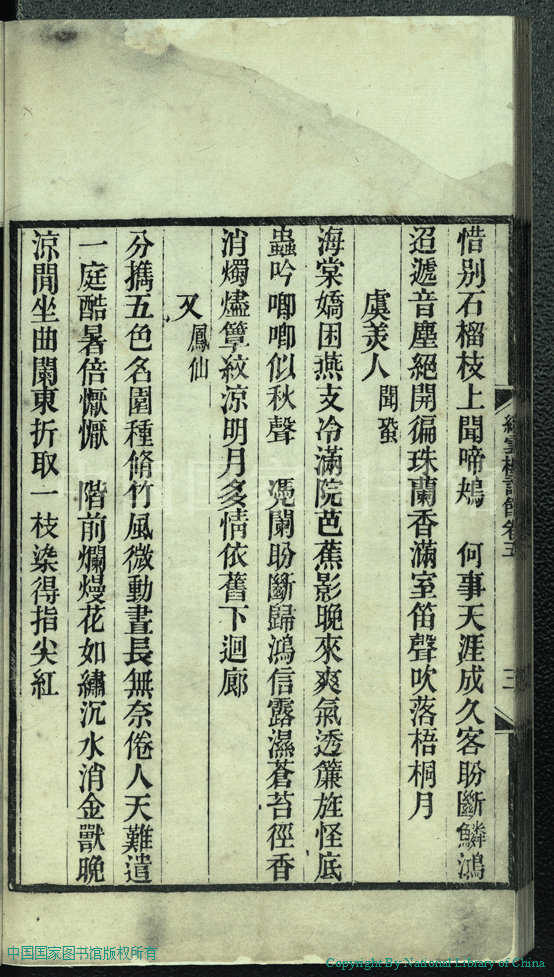 惜別石榴枝上聞啼鴂　何事天涯成久客盼斷鱗鴻
迢遞音塵絕開徧珠蘭香滿室笛聲吹落梧桐月
虞美人聞蛩
海棠嬌困燕支冷滿院芭蕉影晚來爽氣透簾旌怪底
蟲吟喞喞似秋聲　凭闌盼斷歸鴻信露濕蒼苔徑香
消燭燼簟紋涼明月多情依舊下迴廊
又鳳仙
分攜五色名園種脩竹風微動晝長無奈倦人天難遣
一庭酷暑倍懨懨　階前爛熳花如繡沉水消金獸晚
涼閒坐曲闌東折取一枝染得指尖紅
卷五
三
中国国家图书馆版权所有
Copyright By National Library of China